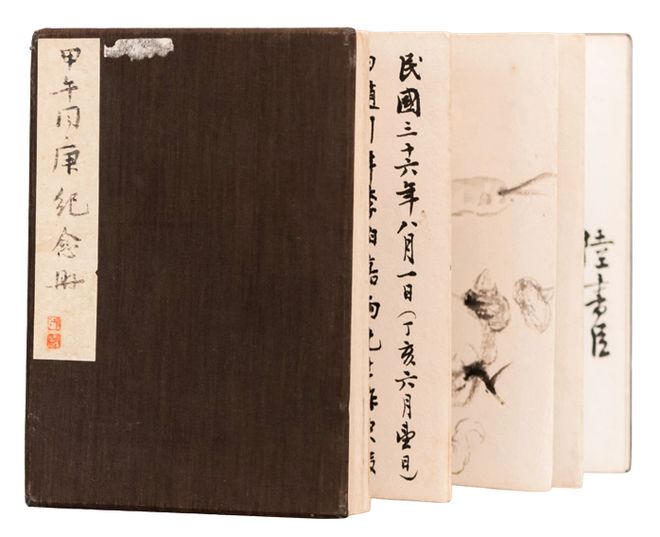 甲午同庚紀念册
民國三十六年八月一日(丁亥六月望日)
陸書臣